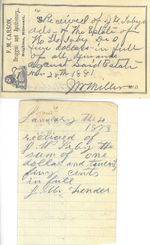 F. M. CARSON,
Druggist and Apothecary,
Received of J W Irby
of the Estate of
five dollars in full
of all demands
against said Estate
Nov 28th 1881
J W Miller
January the 4
1883
Received of
J W Irby the
sum of one
dollar and twenty
five cents
in full
J. W. Lender